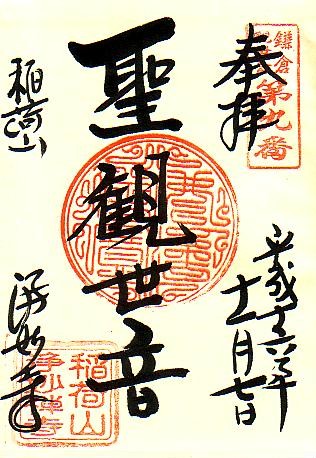 鎌倉
第九番
奉拝
平成十六年
十一月七日
聖観世音
稲荷山
浄妙寺
稲荷山
浄妙禅寺